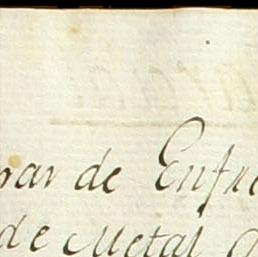 par de Enfre
de Metal